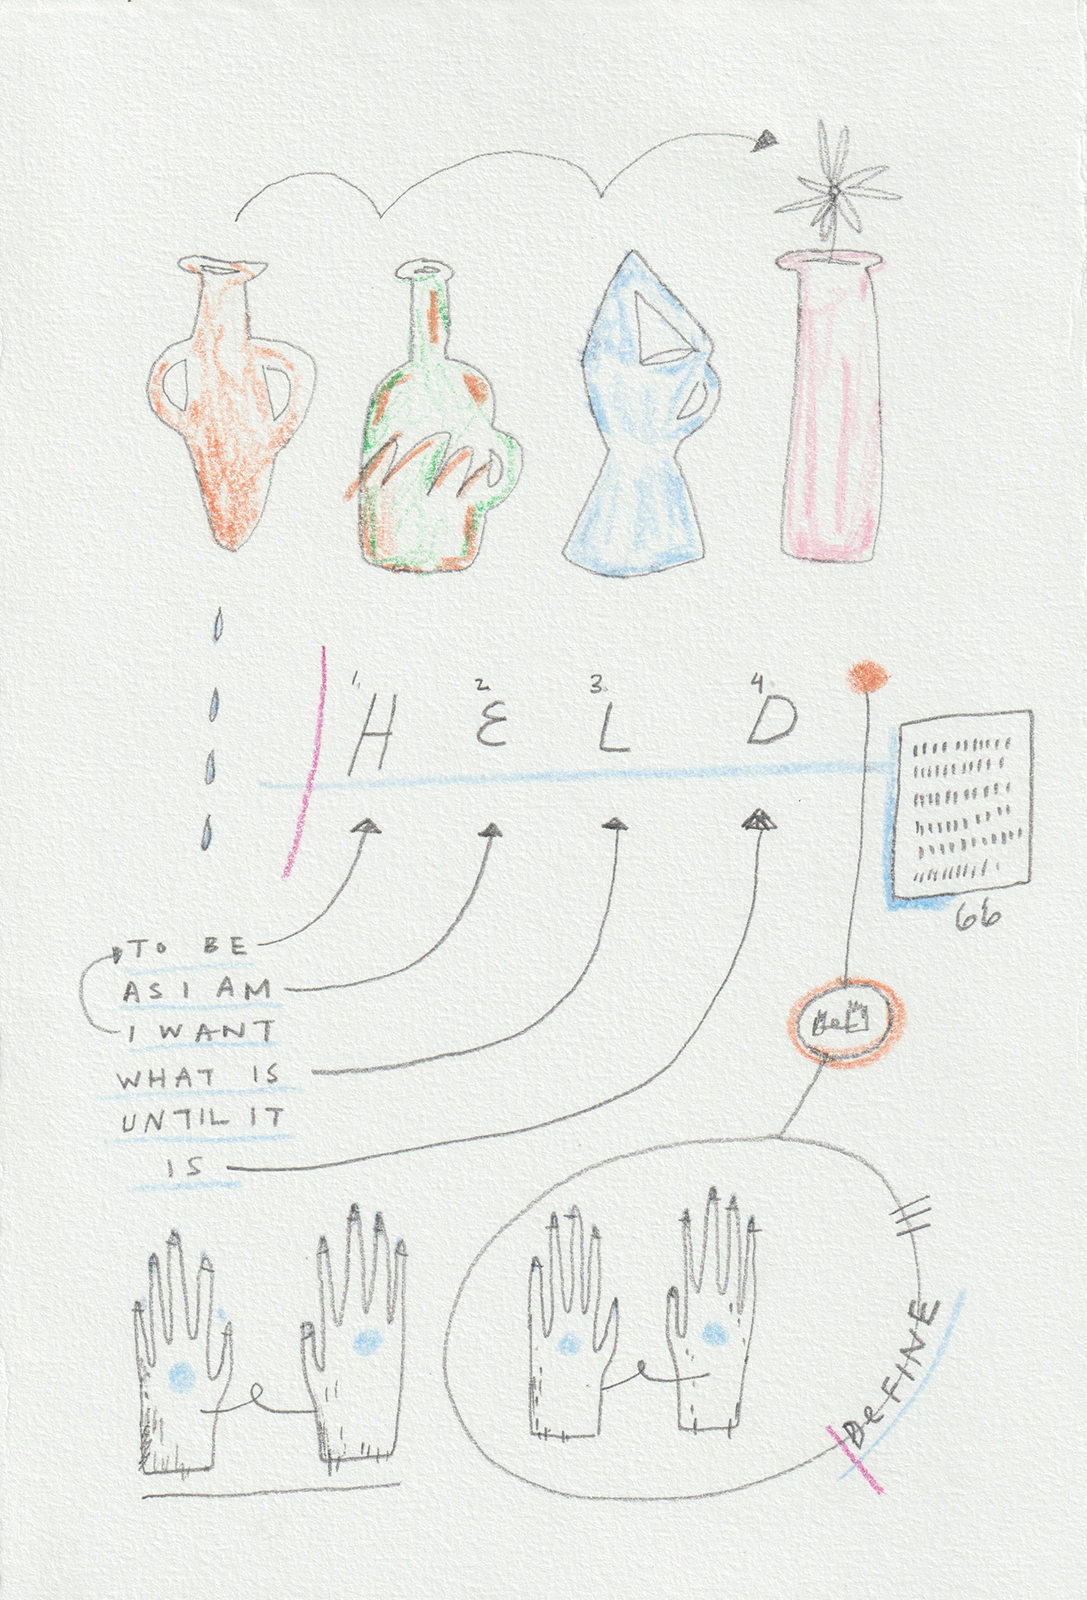 1. 2 3. 4.
H E L D
66
TO BE
AS I AM
I WANT
WHAT IS
UNTIL IT
IS
DeFINE